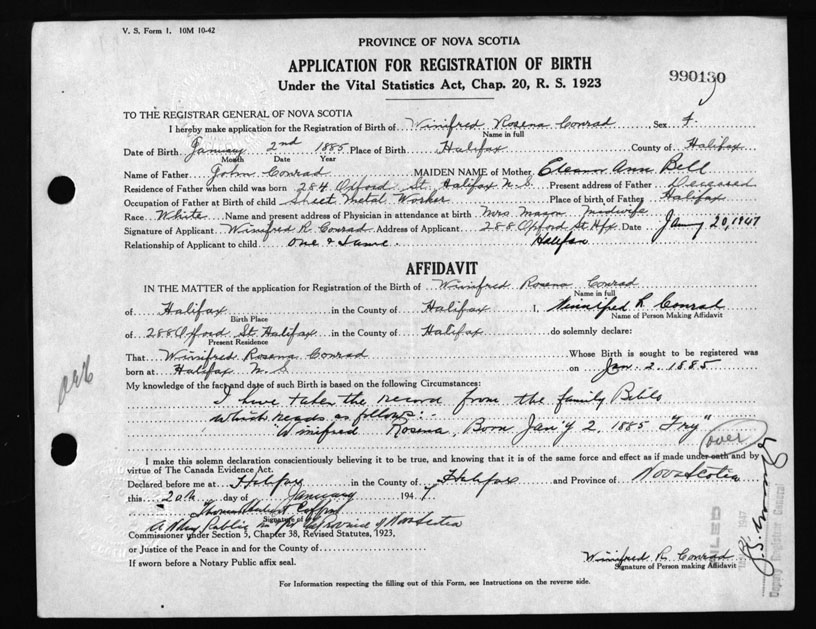 V. S. Form 1. 10M 10-42
PROVINCE OF NOVA SCOTIA
APPLICATION FOR REGISTRATION OF BIRTH
Under the Vital Statistics Act, Chap. 20, R. S. 1923
990130
TO THE REGISTRAR GENERAL OF NOVA SCOTIA
I hereby make application for the Registration of Birth of Winifred Rosena Conrad Sex F
Name in full
Date of Birth January 2nd 1885 Place of Birth Halifax County of Halifax
Month Date Year
Name of Father John Conrad MAIDEN NAME of Mother Eleanor Ann Bell
Residence of Father when child was born 284 Oxford St. Halifax N.S. Present address of Father Deceased
Occupation of Father at Birth of child Sheet Metal Worker Place of birth of Father Halifax
Race White Name and present address of Physician in attendance at birth Mrs Mason Midwife
Signature of Applicant Winifred R. Conrad Address of Applicant 288 Oxford St. Hfx Date Jany 20, 1947
Relationship of Applicant to child One & Same. Halifax
AFFIDAVIT
IN THE MATTER of the application for Registration of the Birth of Winifred Rosena Conrad
Name in full
of Halifax in the County of Halifax I, Winnifred R. Conrad
Birth Place Name of Person Making Affidavit
of 288 Oxford St Halifax in the County of Halifax do solemnly declare:
Present Residence
That Winifred Rosena Conrad Whose Birth is sought to be registered was
born at Halifax N.S on Jan. 2. 1885
My knowledge of the fact and date of such Birth is based on the following Circumstances:
I have taken the record from the family Bible
which reads as follows:-
"Winifred Rosena, Born Jan'y 2. 1885 Fry"
(over)
I make this solemn declaration conscientiously believing it to be true, and knowing that it is of the same force and effect as if made under oath and by
virtue of The Canada Evidence Act.
Declared before me at Halifax in the County of Halifax and Province of Nova Scotia
this 20th day of January 1947
Signature of
A Notary Public in & for the Province of Nova Scotia
Commissioner under Section 5, Chapter 38, Revised Statutes, 1923,
or Justice of the Peace in and for the County of
If sworn before a Notary Public affix seal.
Winifred R. Conrad
Signature of Person making Affidavit
For Information respecting the filling out of this Form, see Instructions on the reverse side.
Deputy Registrar General